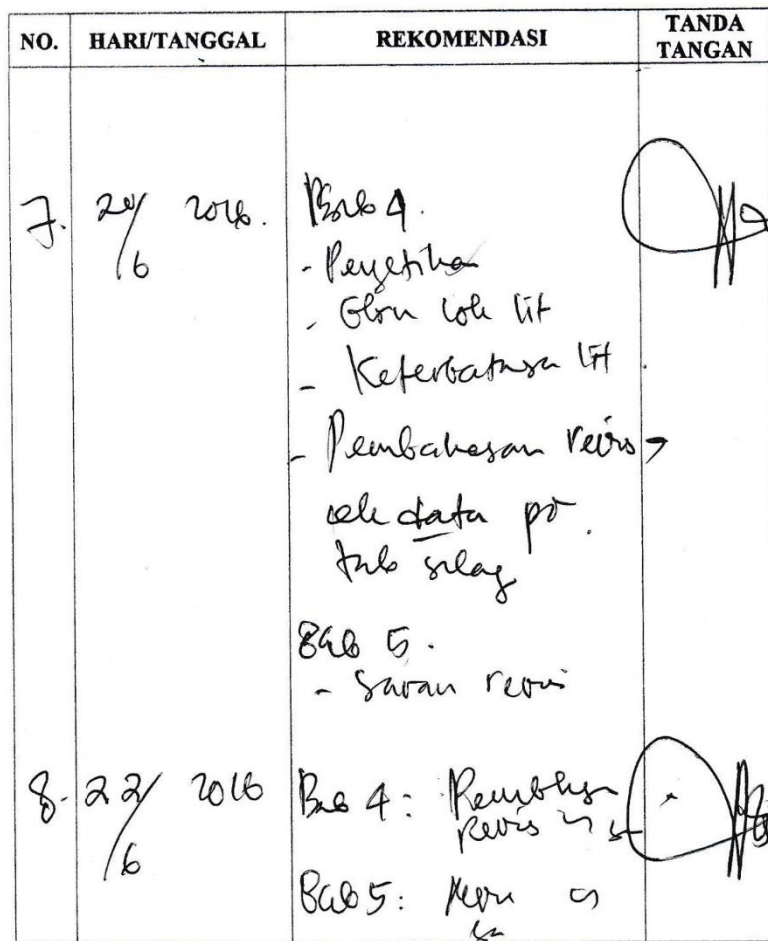 NO. HARI/TANGGAL REKOMENDASI TANDA TANGAN
7. 20/6 2016. Bab 4.
- Pengetikan
- Gbrn lok lit
- Keterbatasan lit.
- Pembahasan revisi →
cek data pd.
tab silang
Bab 5.
- Saran revisi
8. 22/6 2016 Bab 4: Pembahasan
revisi
Bab 5: